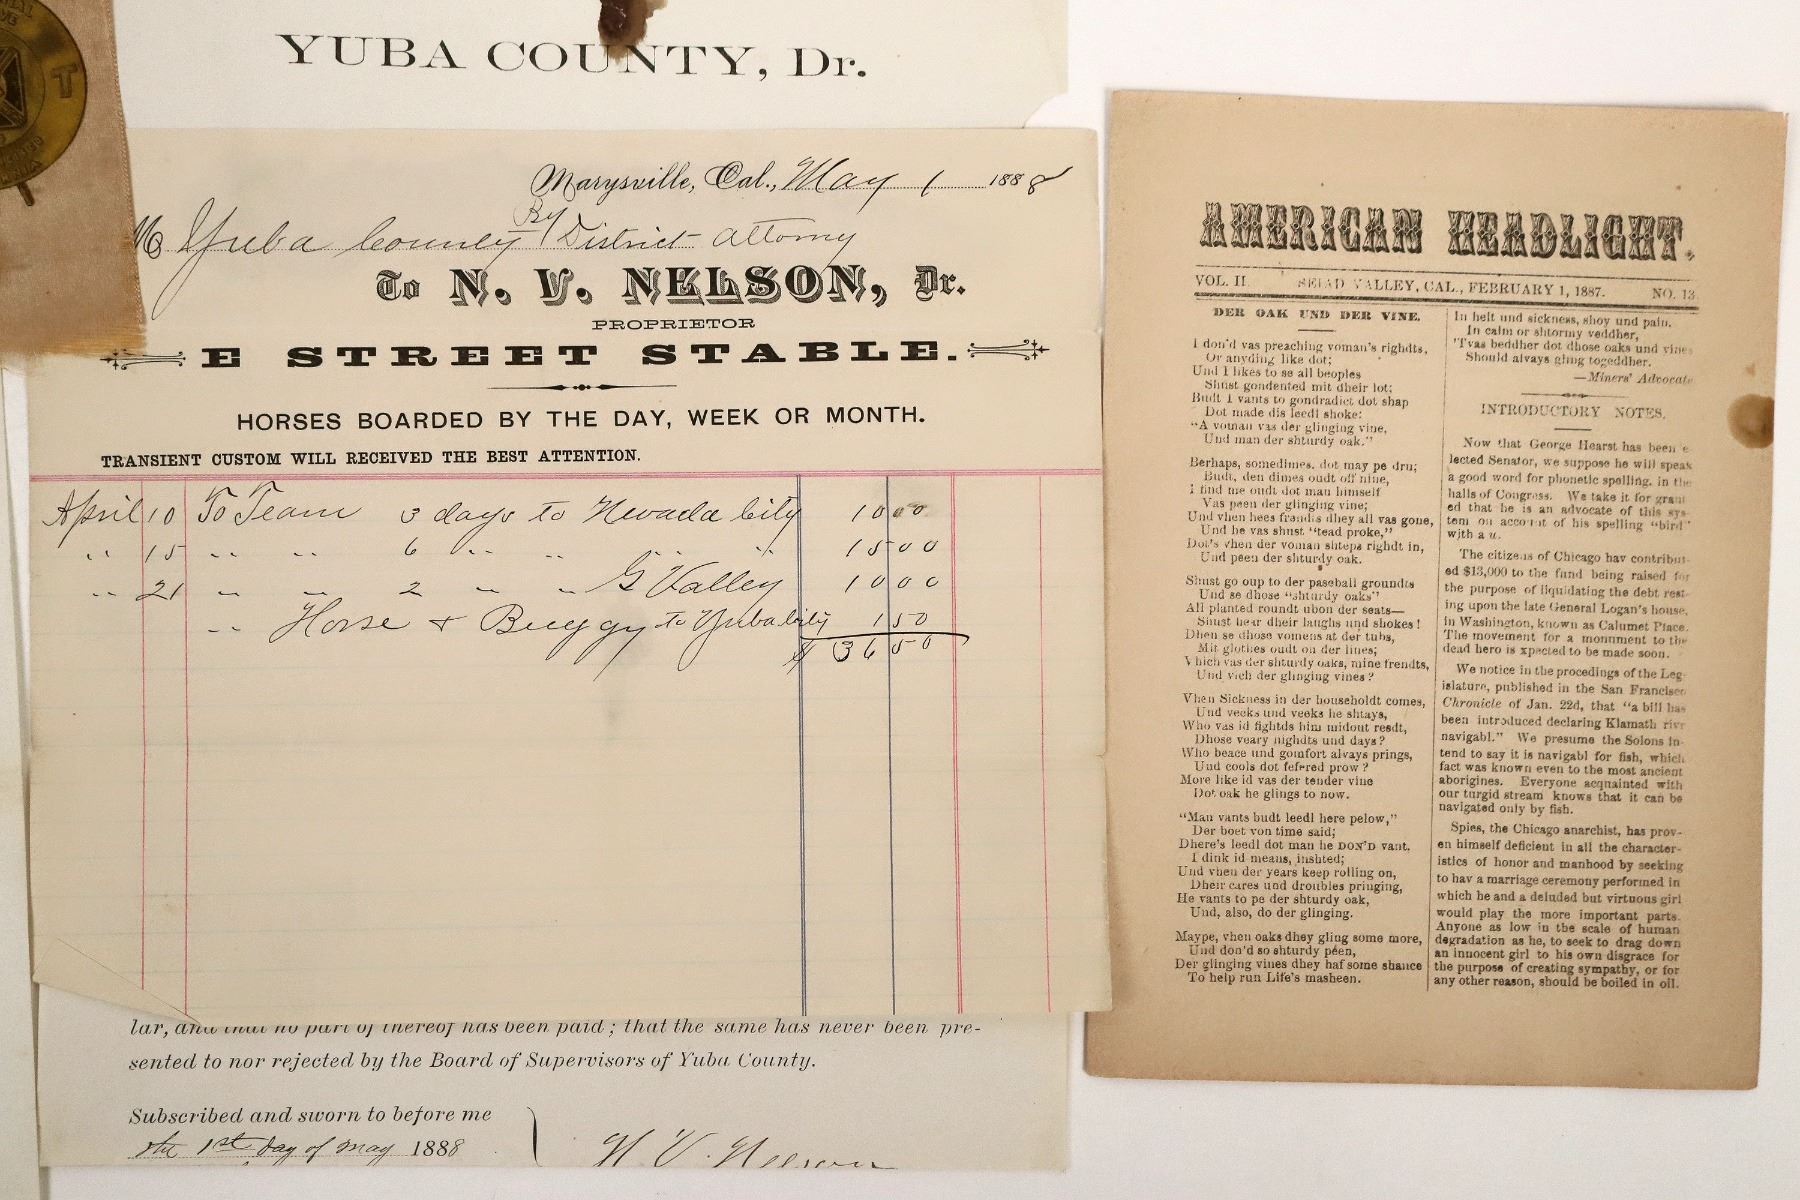 T
YUBA COUNTY, Dr.
Marysville, Cal., May 1 1888
By
M Yuba County District Attorny
To N. V. NELSON, Dr.
PROPRIETOR
E STREET STABLE.
HORSES BOARDED BY THE DAY, WEEK OR MONTH.
TRANSIENT CUSTOM WILL RECEIVED THE BEST ATTENTION.
April 10 To Team 3 days to Nevada City 10 00
" 15 " " 6 " " " " 15 00
" 21 " " 2 " " G Valley 10 00
" Horse & Buggy to Yuba City 1 50
$ 36 50
lar, and that no part of thereof has been paid; that the same has never been pre-
sented to nor rejected by the Board of Supervisors of Yuba County.
Subscribed and sworn to before me
the 1st day of May 1888
N. V. Nelson
AMERICAN HEADLIGHT.
VOL. II. SEIAD VALLEY, CAL., FEBRUARY 1, 1887. NO. 13.
DER OAK UND DER VINE.
I don'd vas preaching voman's righdts,
Or anyding like dot;
Und I likes to se all beoples
Shust gondented mit dheir lot;
Budt I vants to gondradict dot shap
Dot made dis leedl shoke:
"A voman vas der glinging vine,
Und man der shturdy oak."
Berhaps, somedimes, dot may pe dru;
Budt, den dimes oudt off nine,
I find me oudt dot man himself
Vas peen der glinging vine;
Und vhen hees frendts dhey all vas gone,
Und he vas shust "tead proke,"
Dot's vhen der voman shteps righdt in,
Und peen der shturdy oak.
Shust go oup to der paseball groundts
Und se dhose "shturdy oaks"
All planted roundt ubon der seats—
Shust hear dheir laughs und shokes!
Dhen se dhose vomens at der tubs,
Mit glothes oudt on der lines;
Vhich vas der shturdy oaks, mine frendts,
Und vich der glinging vines?
Vhen Sickness in der householdt comes,
Und veeks und veeks he shtays,
Who vas id fightds him midout resdt,
Dhose veary nighdts und days?
Who beace und gomfort alvays prings,
Und cools dot fefered prow?
More like id vas der tender vine
Dot oak he glings to now.
"Man vants budt leedl here pelow,"
Der boet von time said;
Dhere's leedl dot man he DON'D vant,
I dink id means, inshted;
Und vhen der years keep rolling on,
Dheir cares und droubles pringing,
He vants to pe der shturdy oak,
Und, also, do der glinging.
Maype, vhen oaks dhey gling some more,
Und don'd so shturdy péen,
Der glinging vines dhey haf some shance
To help run Life's masheen.
In helt und sickness, shoy und pain,
In calm or shtormy veddher,
'Tvas beddher dot dhose oaks und vines
Should alvays gling togeddher.
—Miners' Advocate
INTRODUCTORY NOTES.
Now that George Hearst has been e-
lected Senator, we suppose he will speak
a good word for phonetic spelling, in the
halls of Congress. We take it for grant
ed that he is an advocate of this sys-
tem on account of his spelling "bird"
with a u.
The citizens of Chicago hav contribut-
ed $13,000 to the fund being raised for
the purpose of liquidating the debt rest-
ing upon the late General Logan's house,
in Washington, known as Calumet Place.
The movement for a monument to the
dead hero is xpected to be made soon.
We notice in the procedings of the Leg-
islature, published in the San Francisco
Chronicle of Jan. 22d, that "a bill has
been introduced declaring Klamath rivr
navigabl." We presume the Solons in-
tend to say it is navigabl for fish, which
fact was known even to the most ancient
aborigines. Everyone acquainted with
our turgid stream knows that it can be
navigated only by fish.
Spies, the Chicago anarchist, has prov-
en himself deficient in all the character-
istics of honor and manhood by seeking
to hav a marriage ceremony performed in
which he and a deluded but virtuous girl
would play the more important parts.
Anyone as low in the scale of human
degradation as he, to seek to drag down
an innocent girl to his own disgrace for
the purpose of creating sympathy, or for
any other reason, should be boiled in oil.